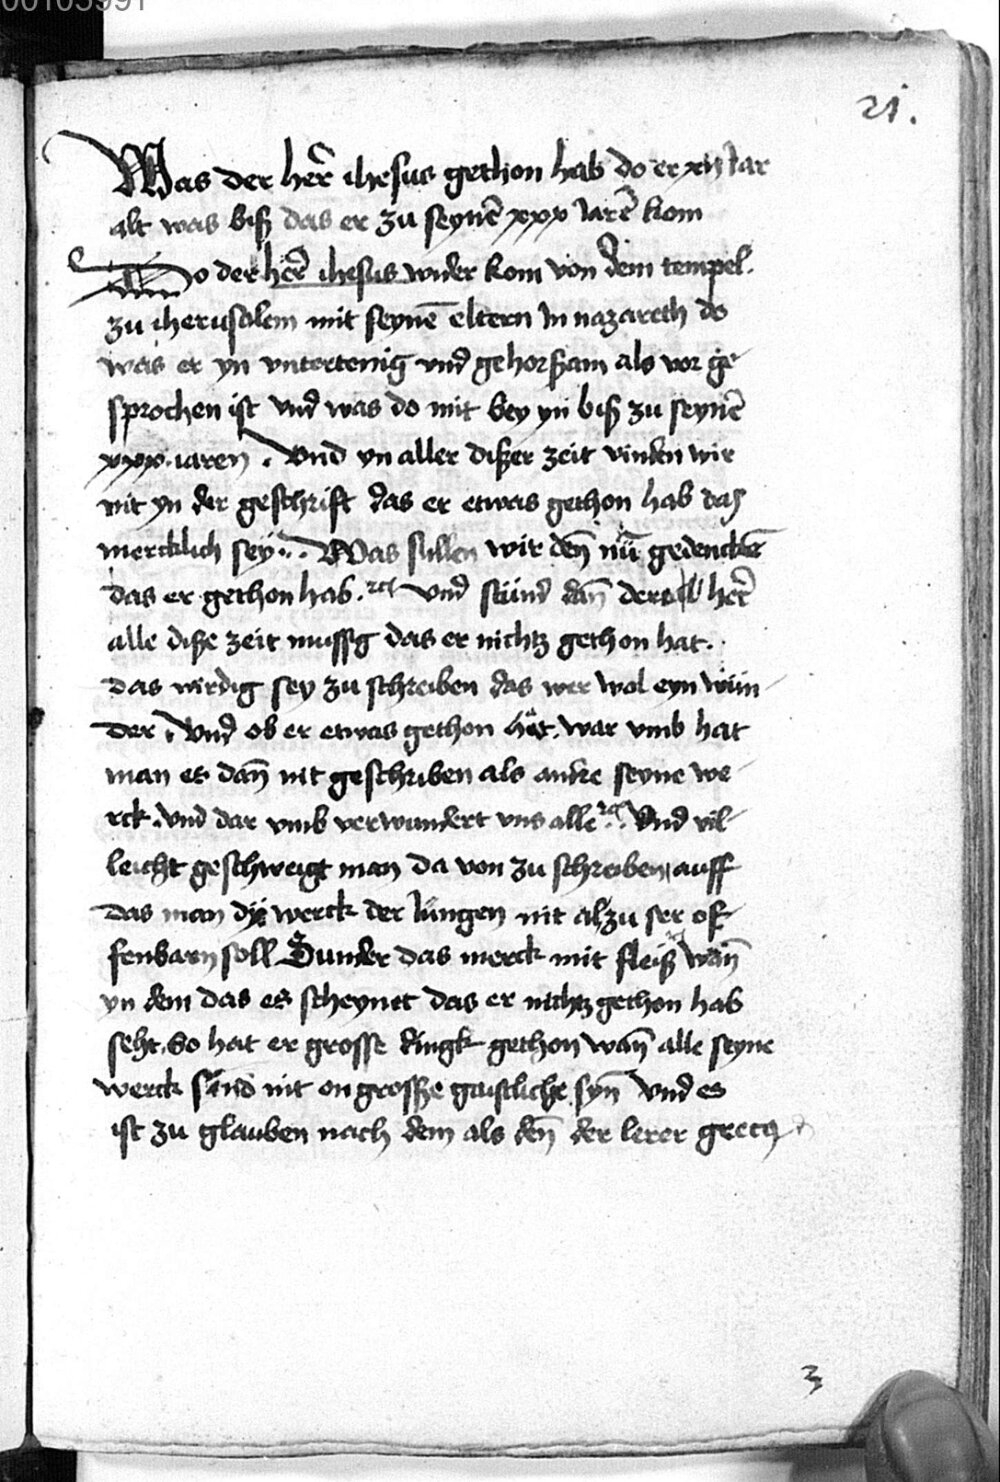 00103991
21.
Was der her̄ ihesus gethon hab do er xij iar
alt was biß das er zu seynē xxx iarē kom
Do der her̄ ihesus wider kom von dem tempel
zu iherusalem mit seynē eltern in nazareth do
was er yn vntertenig vnd gehorsam als vor ge
sprochen ist vnd was do mit bey yn biß zu seynē
xxx iaren . Vnd yn aller dißer zeit vinden wir
nit yn der geschrift das er etwas gethon hab das
mercklich sey . Was sullen wir den̄ nu gedenckē
das er gethon hab . vnd stünd dan̄ der her̄
alle diße zeit mussig das er nichtz gethon hat .
das wirdig sey zu schreiben das wer wol eyn wün
der . Vnd ob er etwas gethon hat . war vmb hat
man es dan̄ nit geschriben als andre seyne we
rck . vnd dar vmb verwundert vns alle . Vnd vil
leicht geschweigt man da von zu schreiben auff
das man dy werck der iungen nit alzu ser of
fenbarn soll Sunder das merck mit fleiß wan̄
yn dem das es scheynet das er nichtz gethon hab
seht . So hat er grosse dingk gethon wan̄ alle seyne
werck sind nit on große gaistliche syn̄ vnd es
ist zu glauben nach dem als den̄ der lerer grecus
3